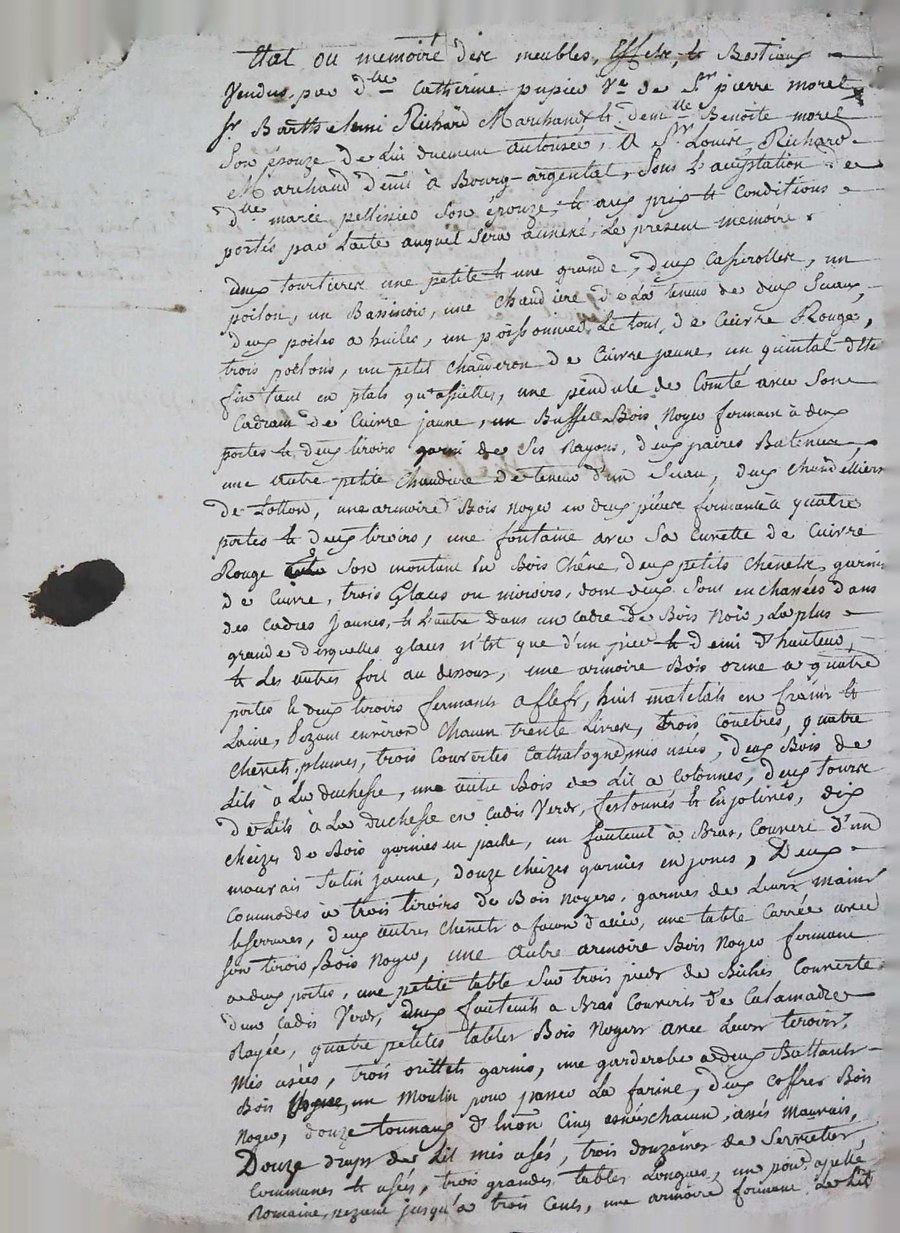 Etat ou memoire des meubles, Effets, & Bestiaux
Vendus par dlle Catherine pupier Ve de Sr pierre morel
Sr Barthelemi Richard Marchand & demlle Benoite morel
Son épouze de Lui duement autorisée, A Sr Louise Richard
Marchand demt à Bourg-argental, Sous L'acceptation de
dlle marie pellissier Son épouze, & aux prix & Conditions
portés par L'acte auquel Sera annexé, Le present memoire.
deux tourtieres une petite & une grande, deux Casserolles, un
poilon, un Bassinoir, une chaudiere de La teneur de deux Seaux,
deux poiles a huiles, un poissonnier Le tout de Cuivre Rouge,
trois poilons, un petit chauderon de Cuivre jaune, un quintal d'Etain
fin tant en plats qu'assiettes, une pendule de Comté avec Son
Cadran de Cuivre jaune, un Buffet Bois Noyer fermant à deux
portes & deux tiroirs garni de Ses Rayons, deux paires Balances,
une autre petite chaudiere de teneur d'un Seau, deux chandelliers
de Lotton, une armoire Bois Noyer en deux pieces fermante à quatre
portes & deux tiroirs, une fontaine avec Sa Cuvette de Cuivre
Rouge Son montant de Bois Chêne, deux petits chenets garnis
de Cuivre, trois Glaces ou miroirs, dont deux Sont enchassées dans
des Cadres Jaunes, & L'autre dans un Cadre de Bois Noir, La plus
grande desquelles glaces n'est que d'un pied & demi d'hauteur,
& Les autres fort au dessous, une armoire Bois orme a quatre
portes & deux tiroirs fermants a clef, huit matelats en &
Laine, pezant environ Chacun trente Livres, trois Couêtres, quatre
chevets plumes, trois Couvertes Cathalogne mis usées, deux Bois de
Lits à La duchesse, une autre Bois de Lit a Colonnes, deux tours
de Lits à La duchesse en Cadis Verd, festonnés & Enjolivés, dix
cheizes de Bois garnies en paille, un fauteuil à Bras, Couvert d'un
mauvais Satin jaune, douze cheizes garnies en joncs, Deux
Commodes à trois tiroirs de Bois Noyers, garnies de Leurs mains
& Serrures, deux autres chenets a facon d'acier, une table Carrée avec
Son tiroir Bois Noyer, une autre armoire Bois Noyer fermant
a deux portes, une petite table Sur trois pieds de Biche Couverte
d'un Cadis Verd, deux fauteuils a Bras Couverts de Calamadre
Rayée, quatre petites tables Bois Noyers avec Leurs tiroirs,
Mis usées, trois garnis, une garderobe a deux Battants
Bois un Moulin pour passer La farine, deux Coffres Bois
Noyer, douze tonnaux d'Environ Cinq chacun, assés Mauvais,
Douze draps de Lit mis usés, trois douzaines de Serviettes,
Communes & usés, trois grandes tables Longues, un poid appellé
Romaine, pezant jusqu'à trois Cents, une armoire formant de Lit